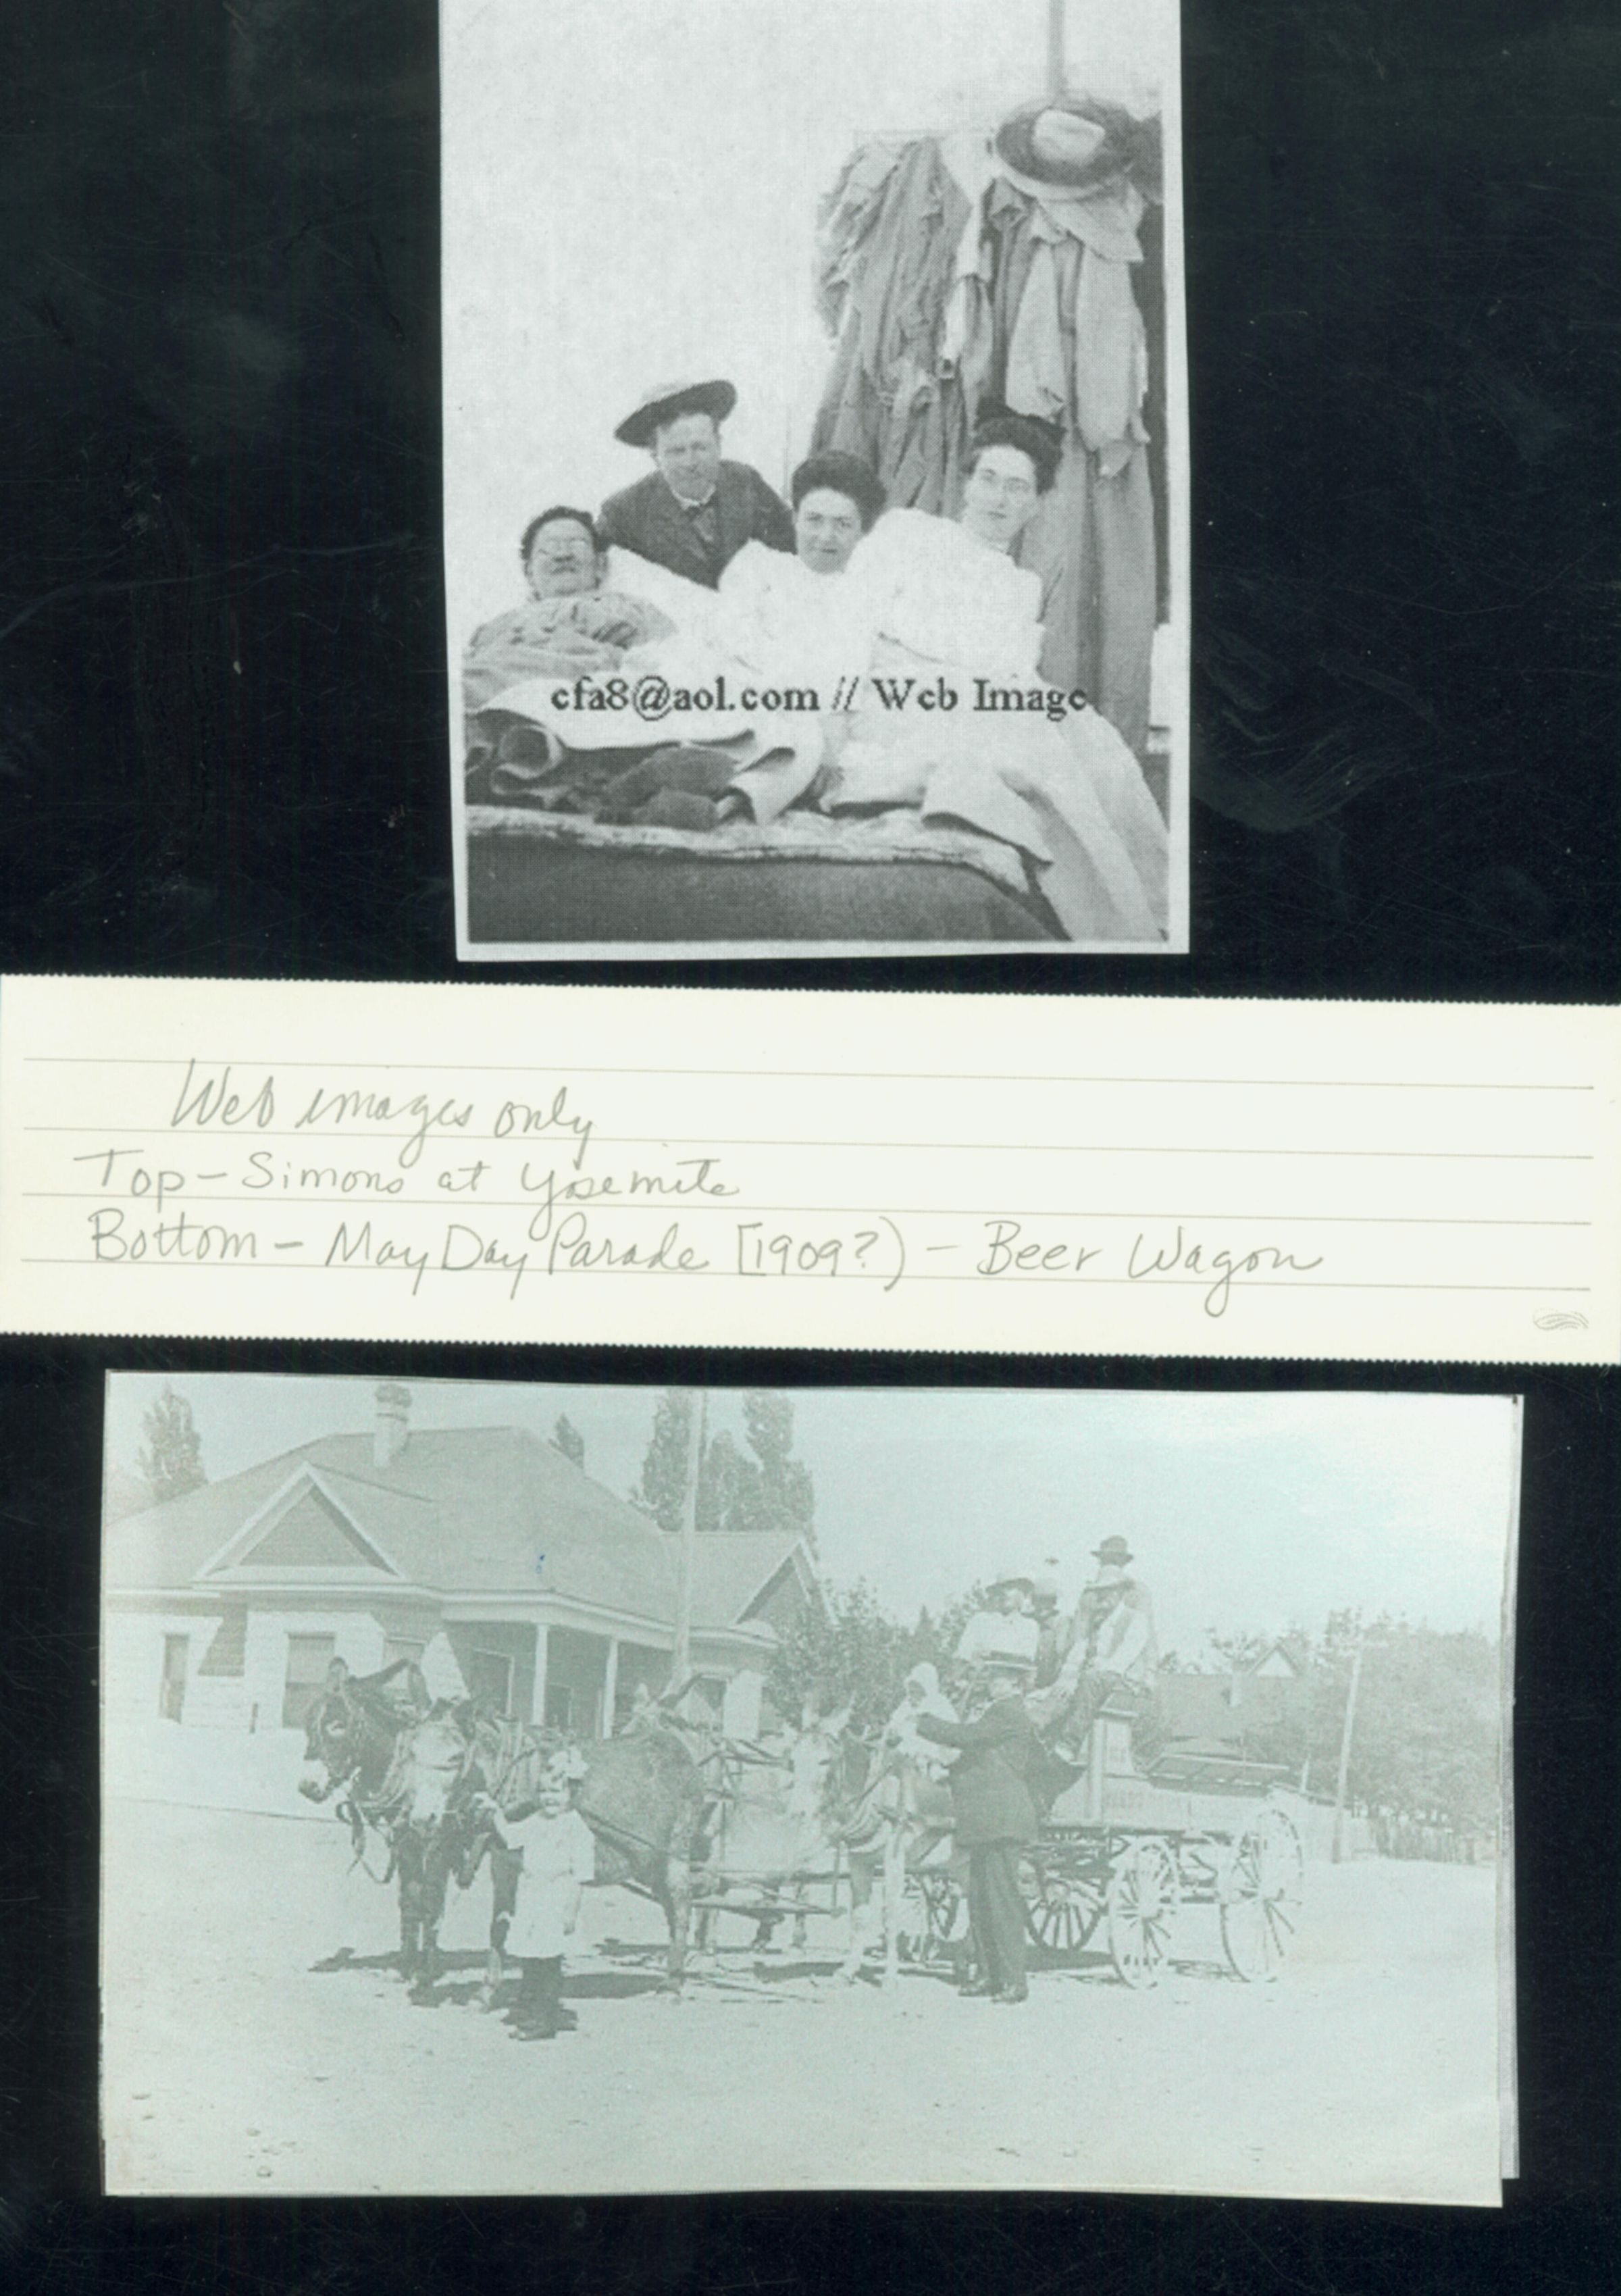 cfa8@aol.com // Web Image
Web images only
Top - Simons at Yosemite
Bottom - May Day Parade [1909?) - Beer Wagon